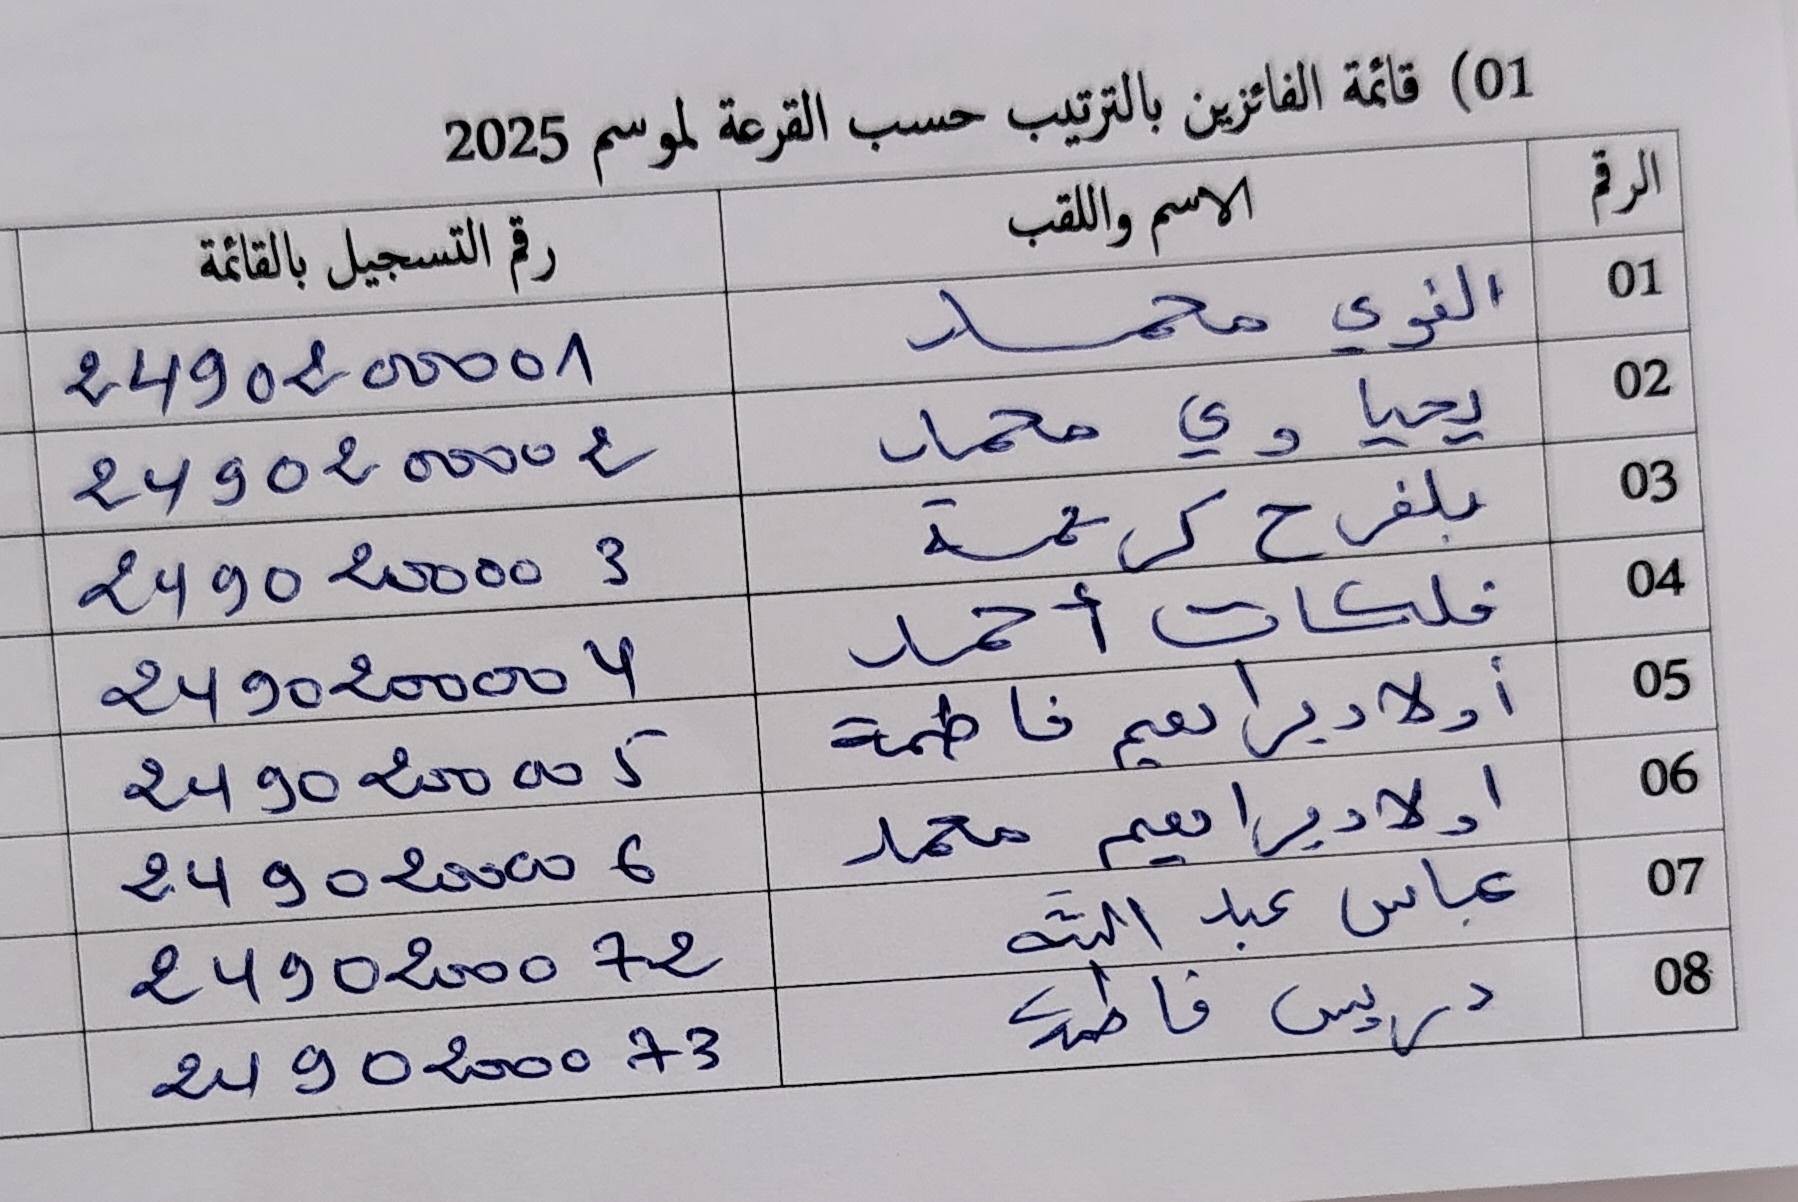 01) قائمة الفائزين بالترتيب حسب القرعة لموسم 2025
الرقم الاسم واللقب رقم التسجيل بالقائمة
01 الفوي محمد 2490200001
02 يحياوي محمد 2490200002
03 بلفرح كريمة 2490200003
04 فلكات أحمد 2490200004
05 أولاد براهيم فاطمة 2490200005
06 اولاد براهيم محمد 2490200006
07 عباس عبد الله 2490200072
08 دريس فاطمة 2490200073